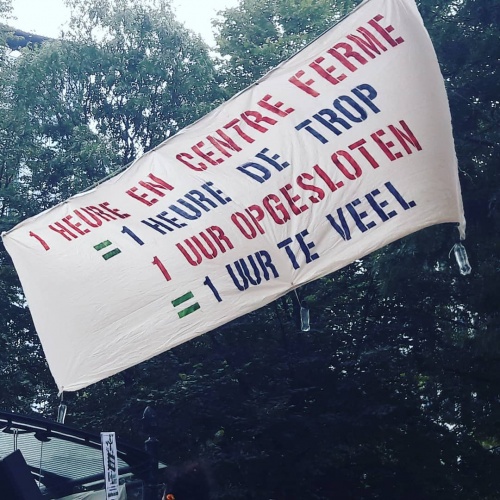 1 HEURE EN CENTRE FERME
= 1 HEURE DE TROP
1 UUR OPGESLOTEN
= 1 UUR TE VEEL